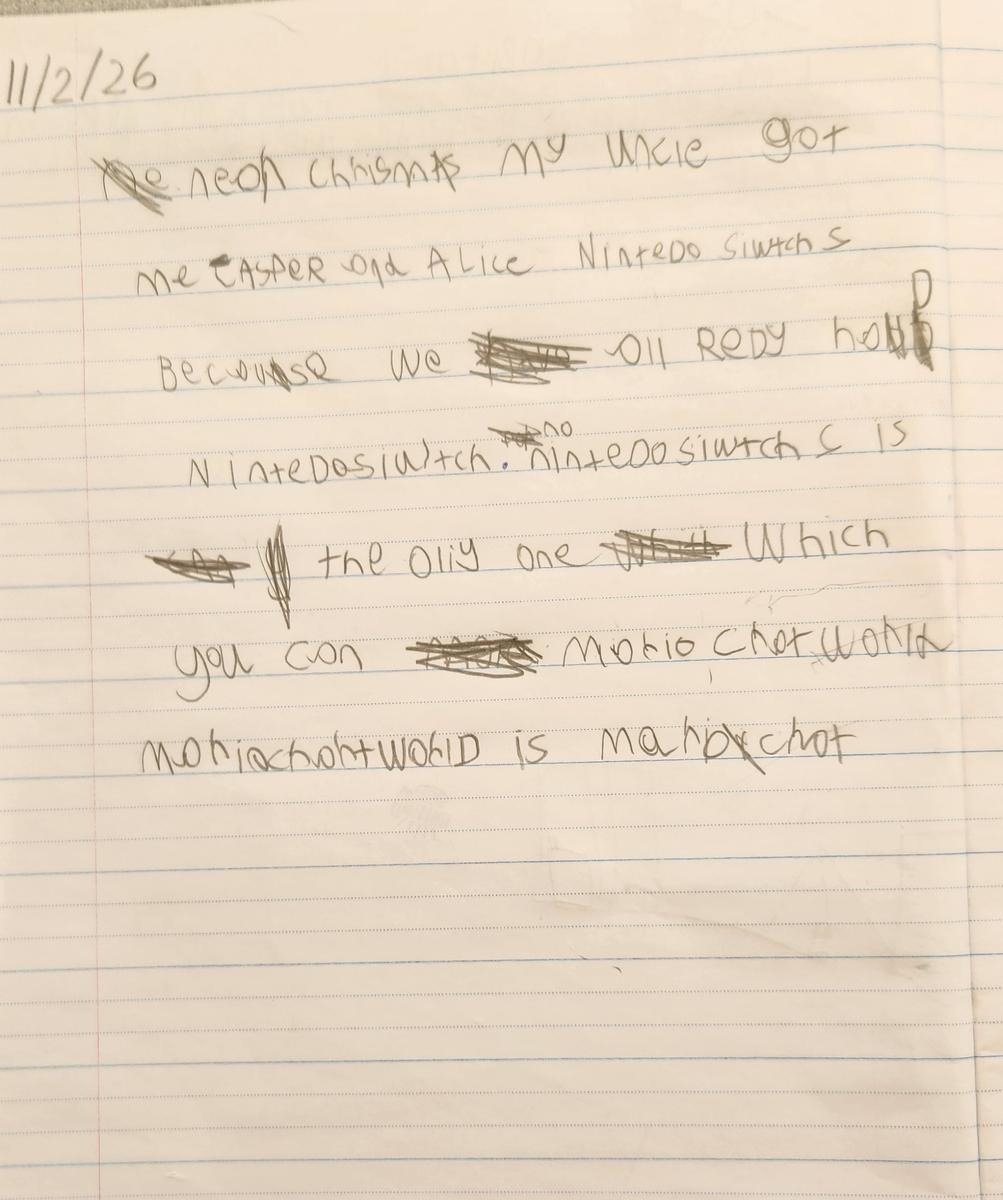 11/2/26
neoh chhismts my uncle got
me CASPER ond ALice NinteDo Siwtch s
Becouse we oll ReDY hoD
NinteDosiwtch. no ninteDo siwtch s is
the olly one Which
you con mohio chot wohld
mohiochohtwohlD is mahochot